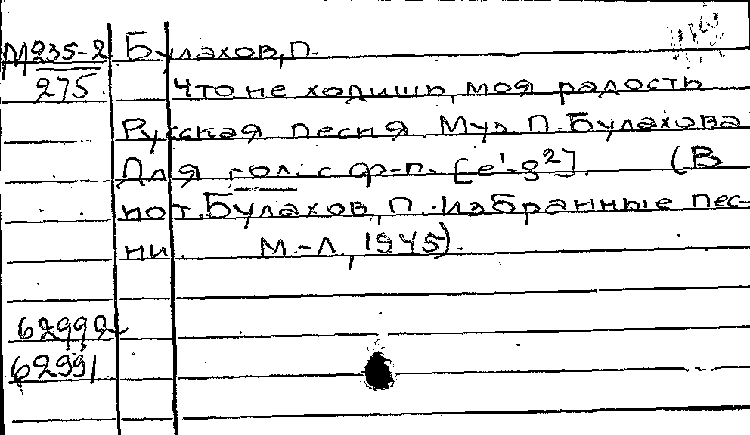 М235-2 Булахов, П.
275 Что не ходишь, моя радость
Русская песня Муз. П. Булахова
Для гол. с ф-п. [e¹-g²]. (В
нот. Булахов, П. Избранные пес-
ни. М.-Л., 1945).
62992
62991